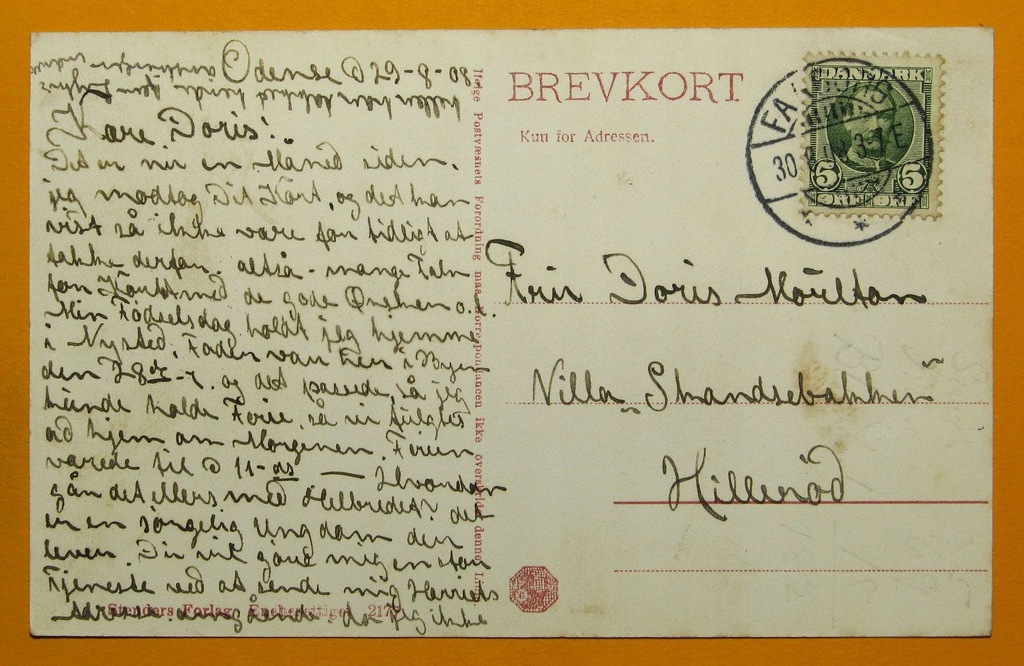 Odense d 29-8-08
Kære Doris!
Det er nu en Måned siden.
jeg modtog Dit Kort, og det kan
vist så ikke være for tidligt at
takke derfor. altså - mange Tak
for Kortet med de gode Ønsker o.s.
Min Fødselsdag holdt jeg hjemme
i Nysted. Fader var her i Byen
den 28de-7. og det passede, så jeg
kunde holde Ferie, så vi fulgtes
ad hjem om Morgenen. Ferien
varede til d 11-8. Hvordan
går det ellers med Helbredet? det
er en sørgelig Ungdom du
lever. Du vil gøre mig en stor
Tjeneste ved at sende mig Harriets
Adresse omgående. da jeg ikke
Helge Postvæsnets Forordning maa Korrespondancen ikke overskride denne Linie
Stenders Forlag Eneberettiget
BREVKORT
Kun for Adressen.
DANMARK
5 5
ØRE ØRE
30 3-7E
Frk Doris Moulton
Villa „Strandsbakken"
Hillerød